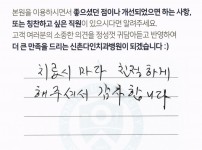 본원을 이용하시면서 좋으셨던 점이나 개선되었으면 하는 사항,
또는 칭찬하고 싶은 직원이 있으시다면 알려주세요.
고객 여러분의 소중한 의견을 정성껏 귀담아듣고 반영하여
더 큰 만족을 드리는 신촌다인치과병원이 되겠습니다 :)
치료시 마다 친절하게
해주셔서 감사합니다